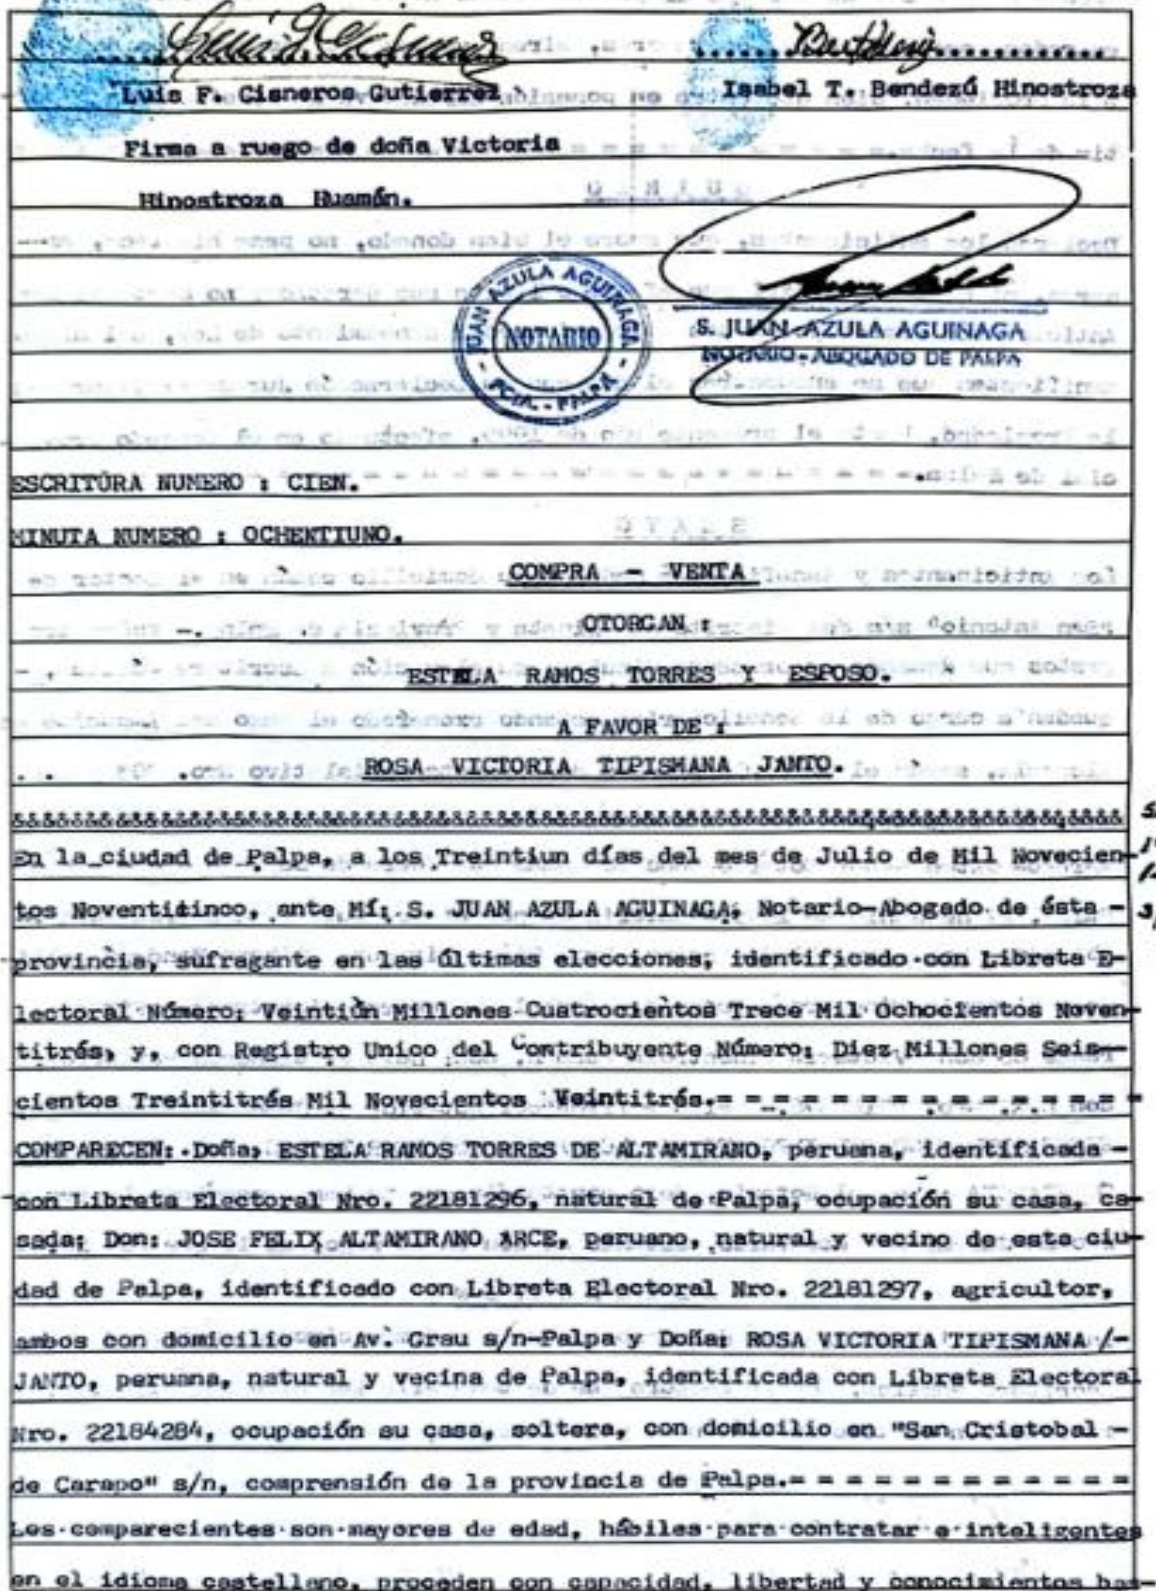 Luis F. Cisneros Gutierrez
Isabel T. Bendezú Hinostroza
Firma a ruego de doña Victoria
Hinostroza Huamán.
JUAN AZULA AGUINAGA
NOTARIO
PCIA. - PALPA
S. JUAN AZULA AGUINAGA
NOTARIO - ABOGADO DE PALPA
ESCRITÚRA NUMERO : CIEN.
MINUTA NUMERO : OCHENTIUNO.
COMPRA - VENTA
OTORGAN :
ESTELA RAMOS TORRES Y ESPOSO.
A FAVOR DE :
ROSA VICTORIA TIPISMANA JANTO.
En la ciudad de Palpa, a los Treintiun días del mes de Julio de Mil Novecien-
tos Noventicinco, ante Mí; S. JUAN AZULA AGUINAGA; Notario-Abogado de ésta -
provincia, sufragante en las últimas elecciones; identificado con Libreta E-
lectoral Número; Veintiùn Millones Cuatrocientos Trece Mil Ochocientos Noven-
titrés, y, con Registro Unico del Contribuyente Número; Diez Millones Seis-
cientos Treintitrés Mil Novecientos Veintitrés.= = = = = = = = = = = = =
COMPARECEN: Doña; ESTELA RAMOS TORRES DE ALTAMIRANO, peruana, identificada -
con Libreta Electoral Nro. 22181296, natural de Palpa, ocupación su casa, ca-
sada; Don: JOSE FELIX ALTAMIRANO ARCE, peruano, natural y vecino de esta ciu-
dad de Palpa, identificado con Libreta Electoral Nro. 22181297, agricultor,
ambos con domicilio en Av. Grau s/n-Palpa y Doña; ROSA VICTORIA TIPISMANA /-
JANTO, peruana, natural y vecina de Palpa, identificada con Libreta Electoral
Nro. 22184284, ocupación su casa, soltera, con domicilio en "San Cristobal -
de Carapo" s/n, comprensión de la provincia de Palpa.= = = = = = = = = = =
Los comparecientes son mayores de edad, hábiles para contratar e inteligentes
en el idioma castellano, proceden con capacidad, libertad y conocimientos bas-